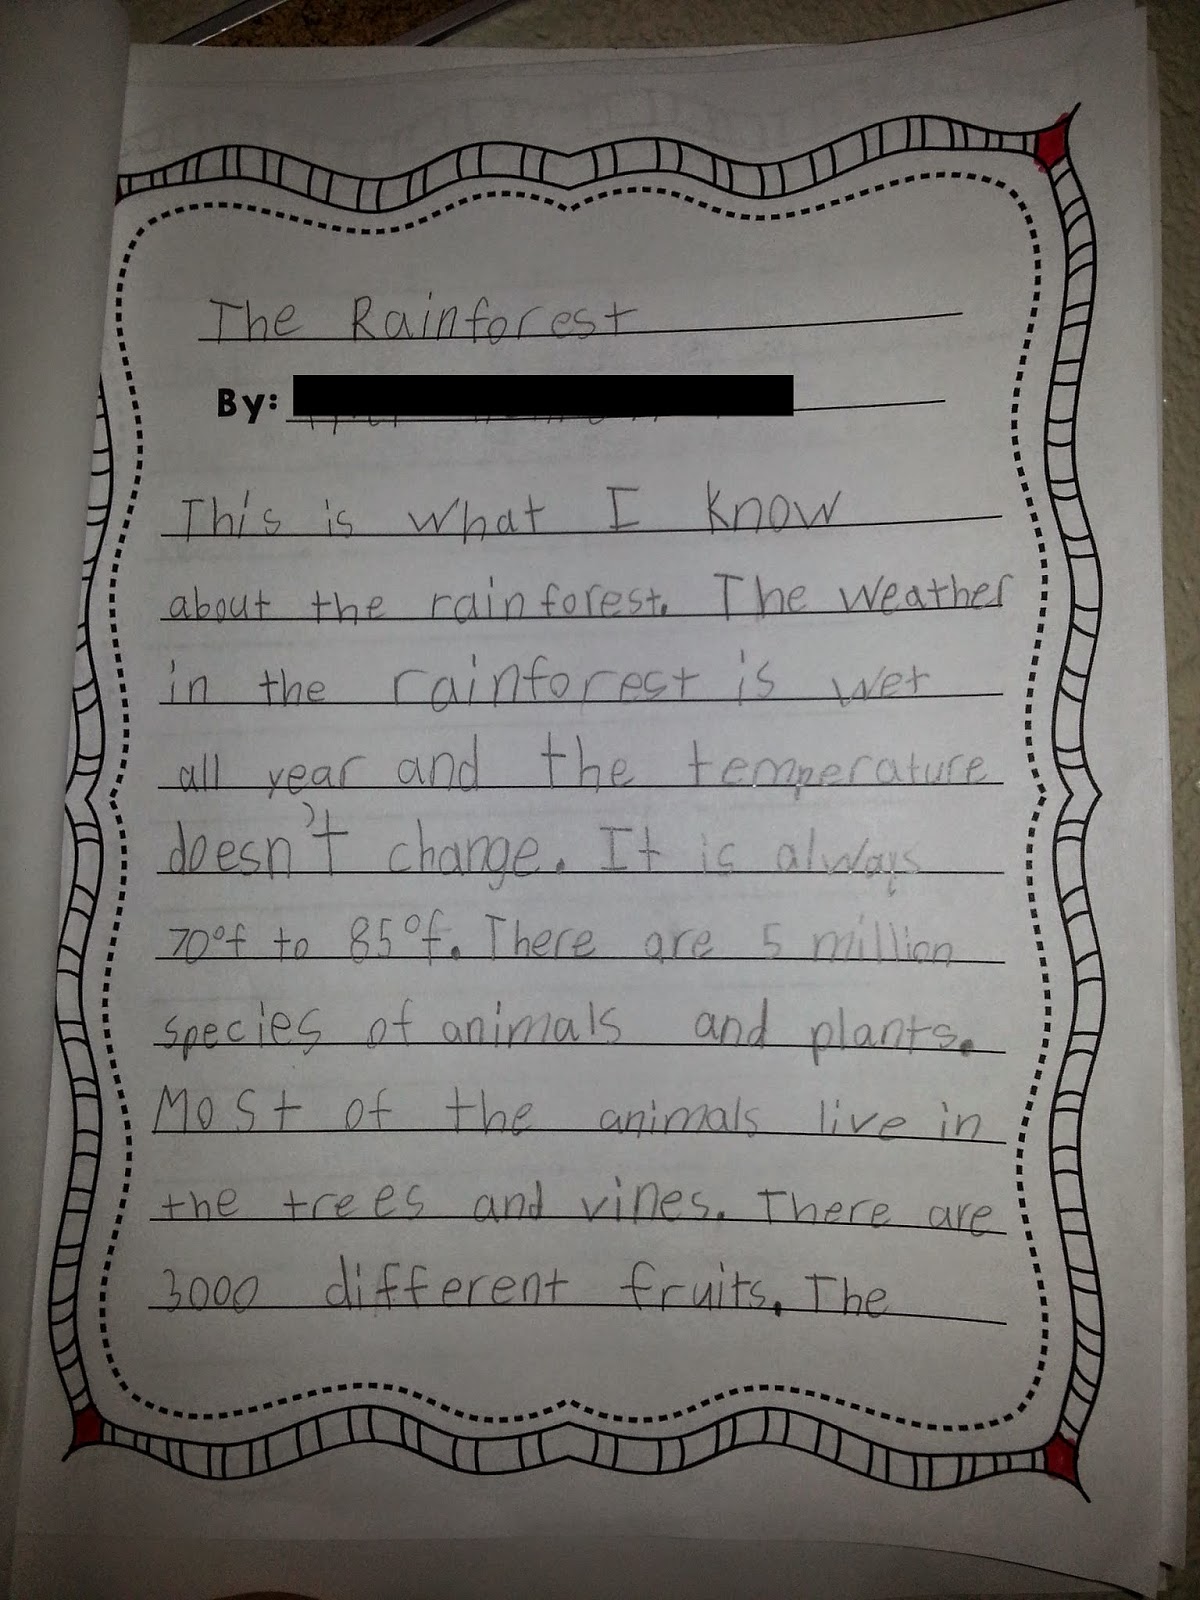 The Rainforest
By:
This is what I know
about the rainforest. The weather
in the rainforest is wet
all year and the temperature
doesn't change. It is always
70°f to 85°f. There are 5 million
species of animals and plants.
Most of the animals live in
the trees and vines. There are
3000 different fruits. The